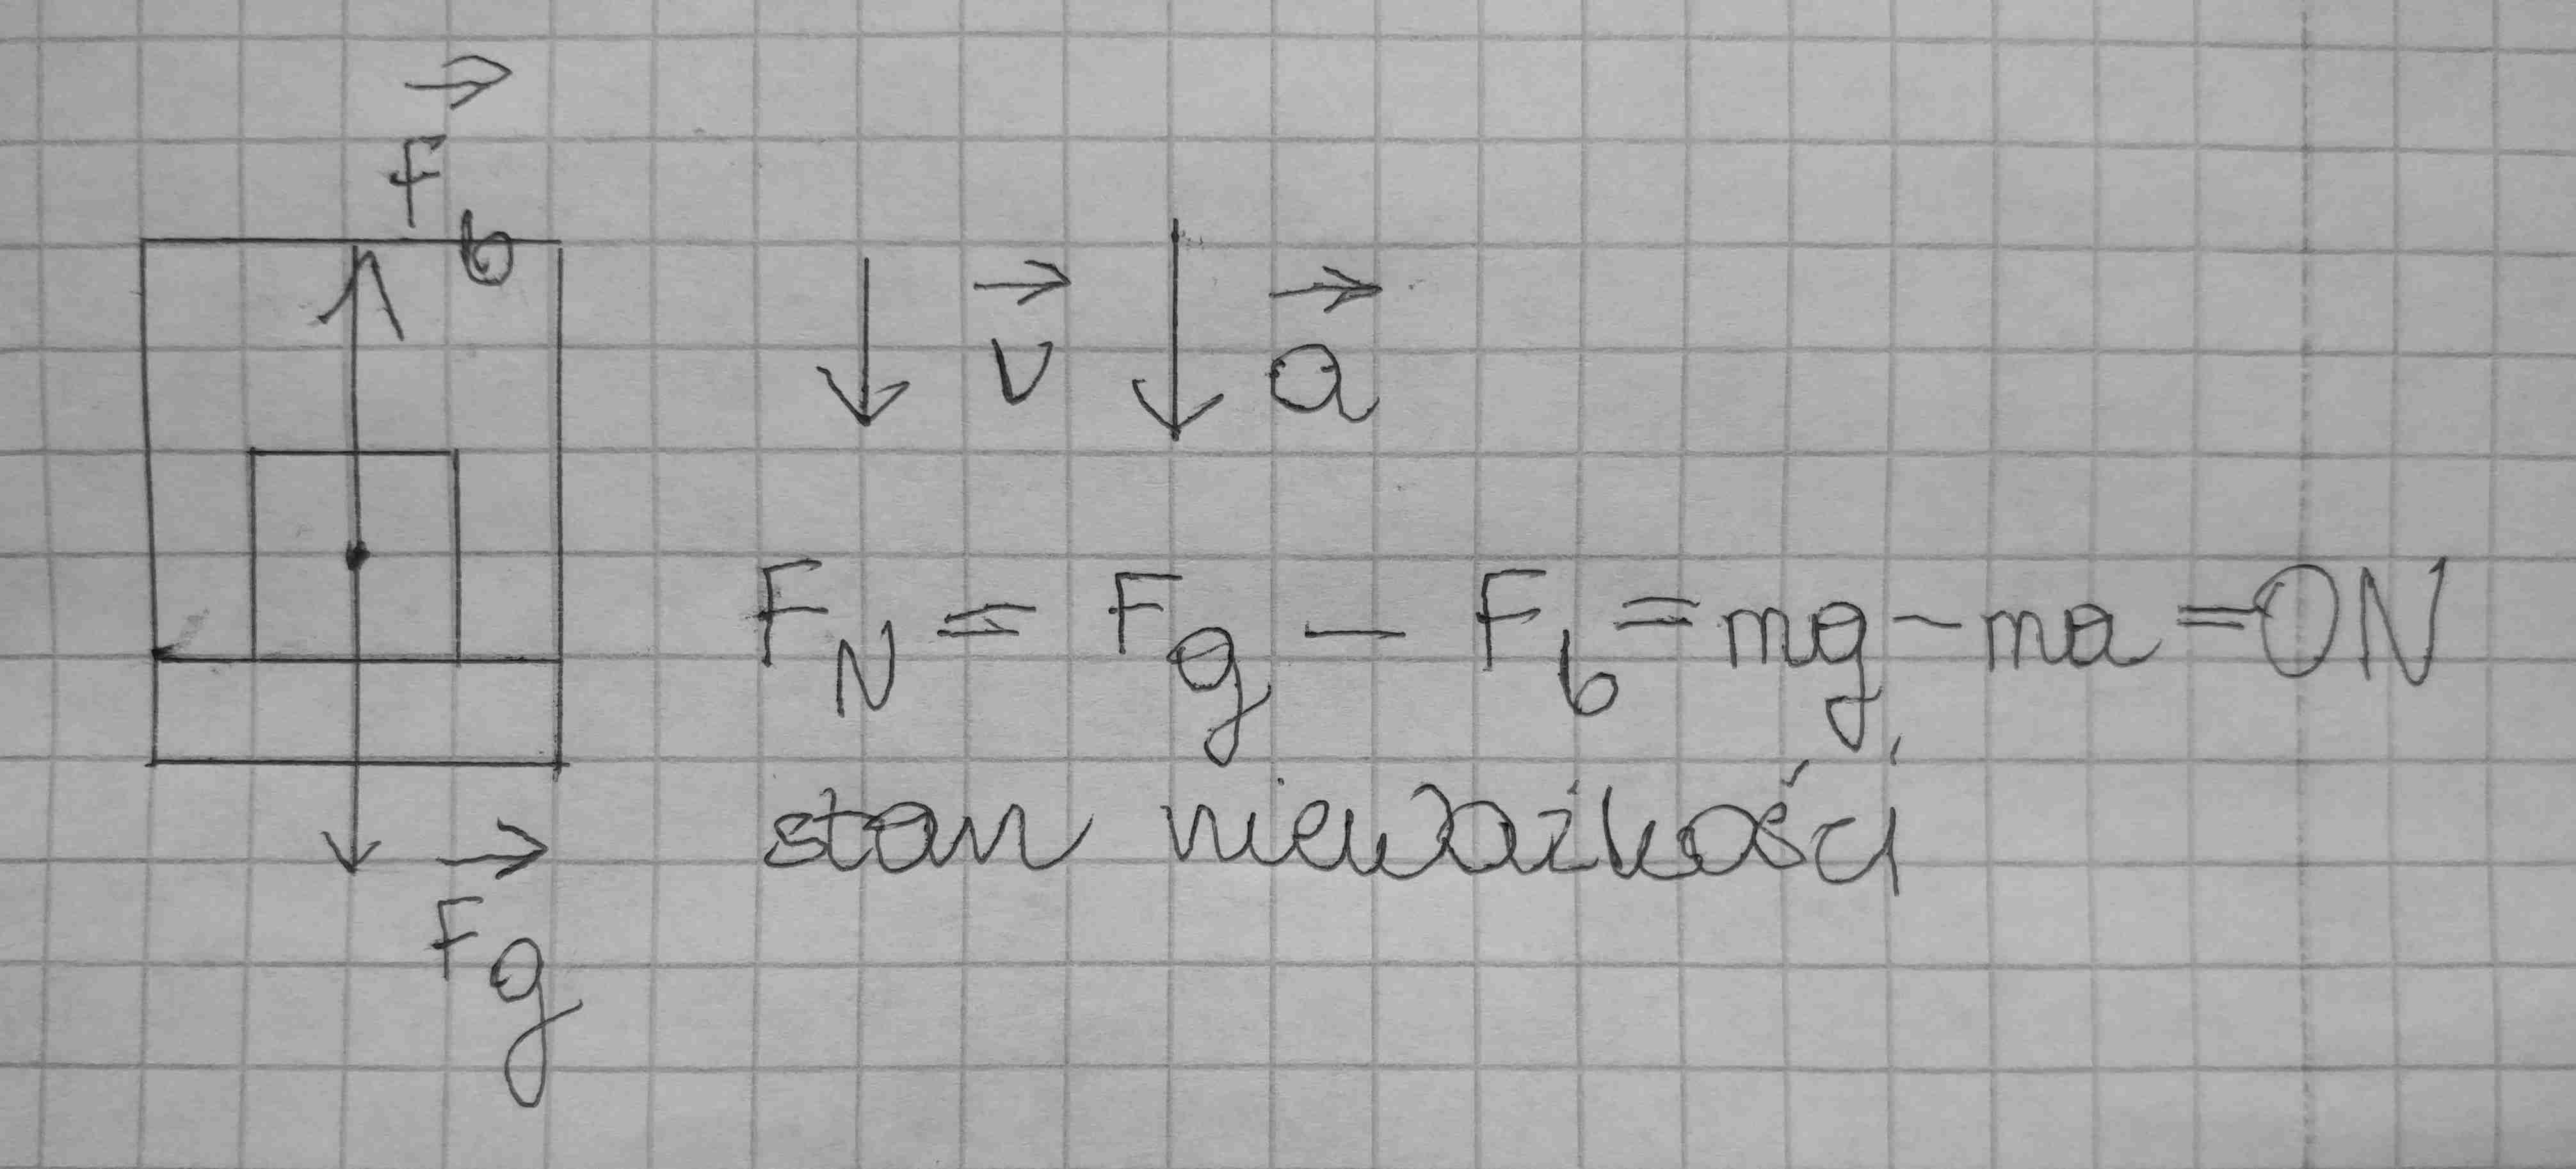 F⃗b
v⃗ a⃗
F_N = F_g - F_b = mg - ma = 0N
stan nieważkości
F⃗g